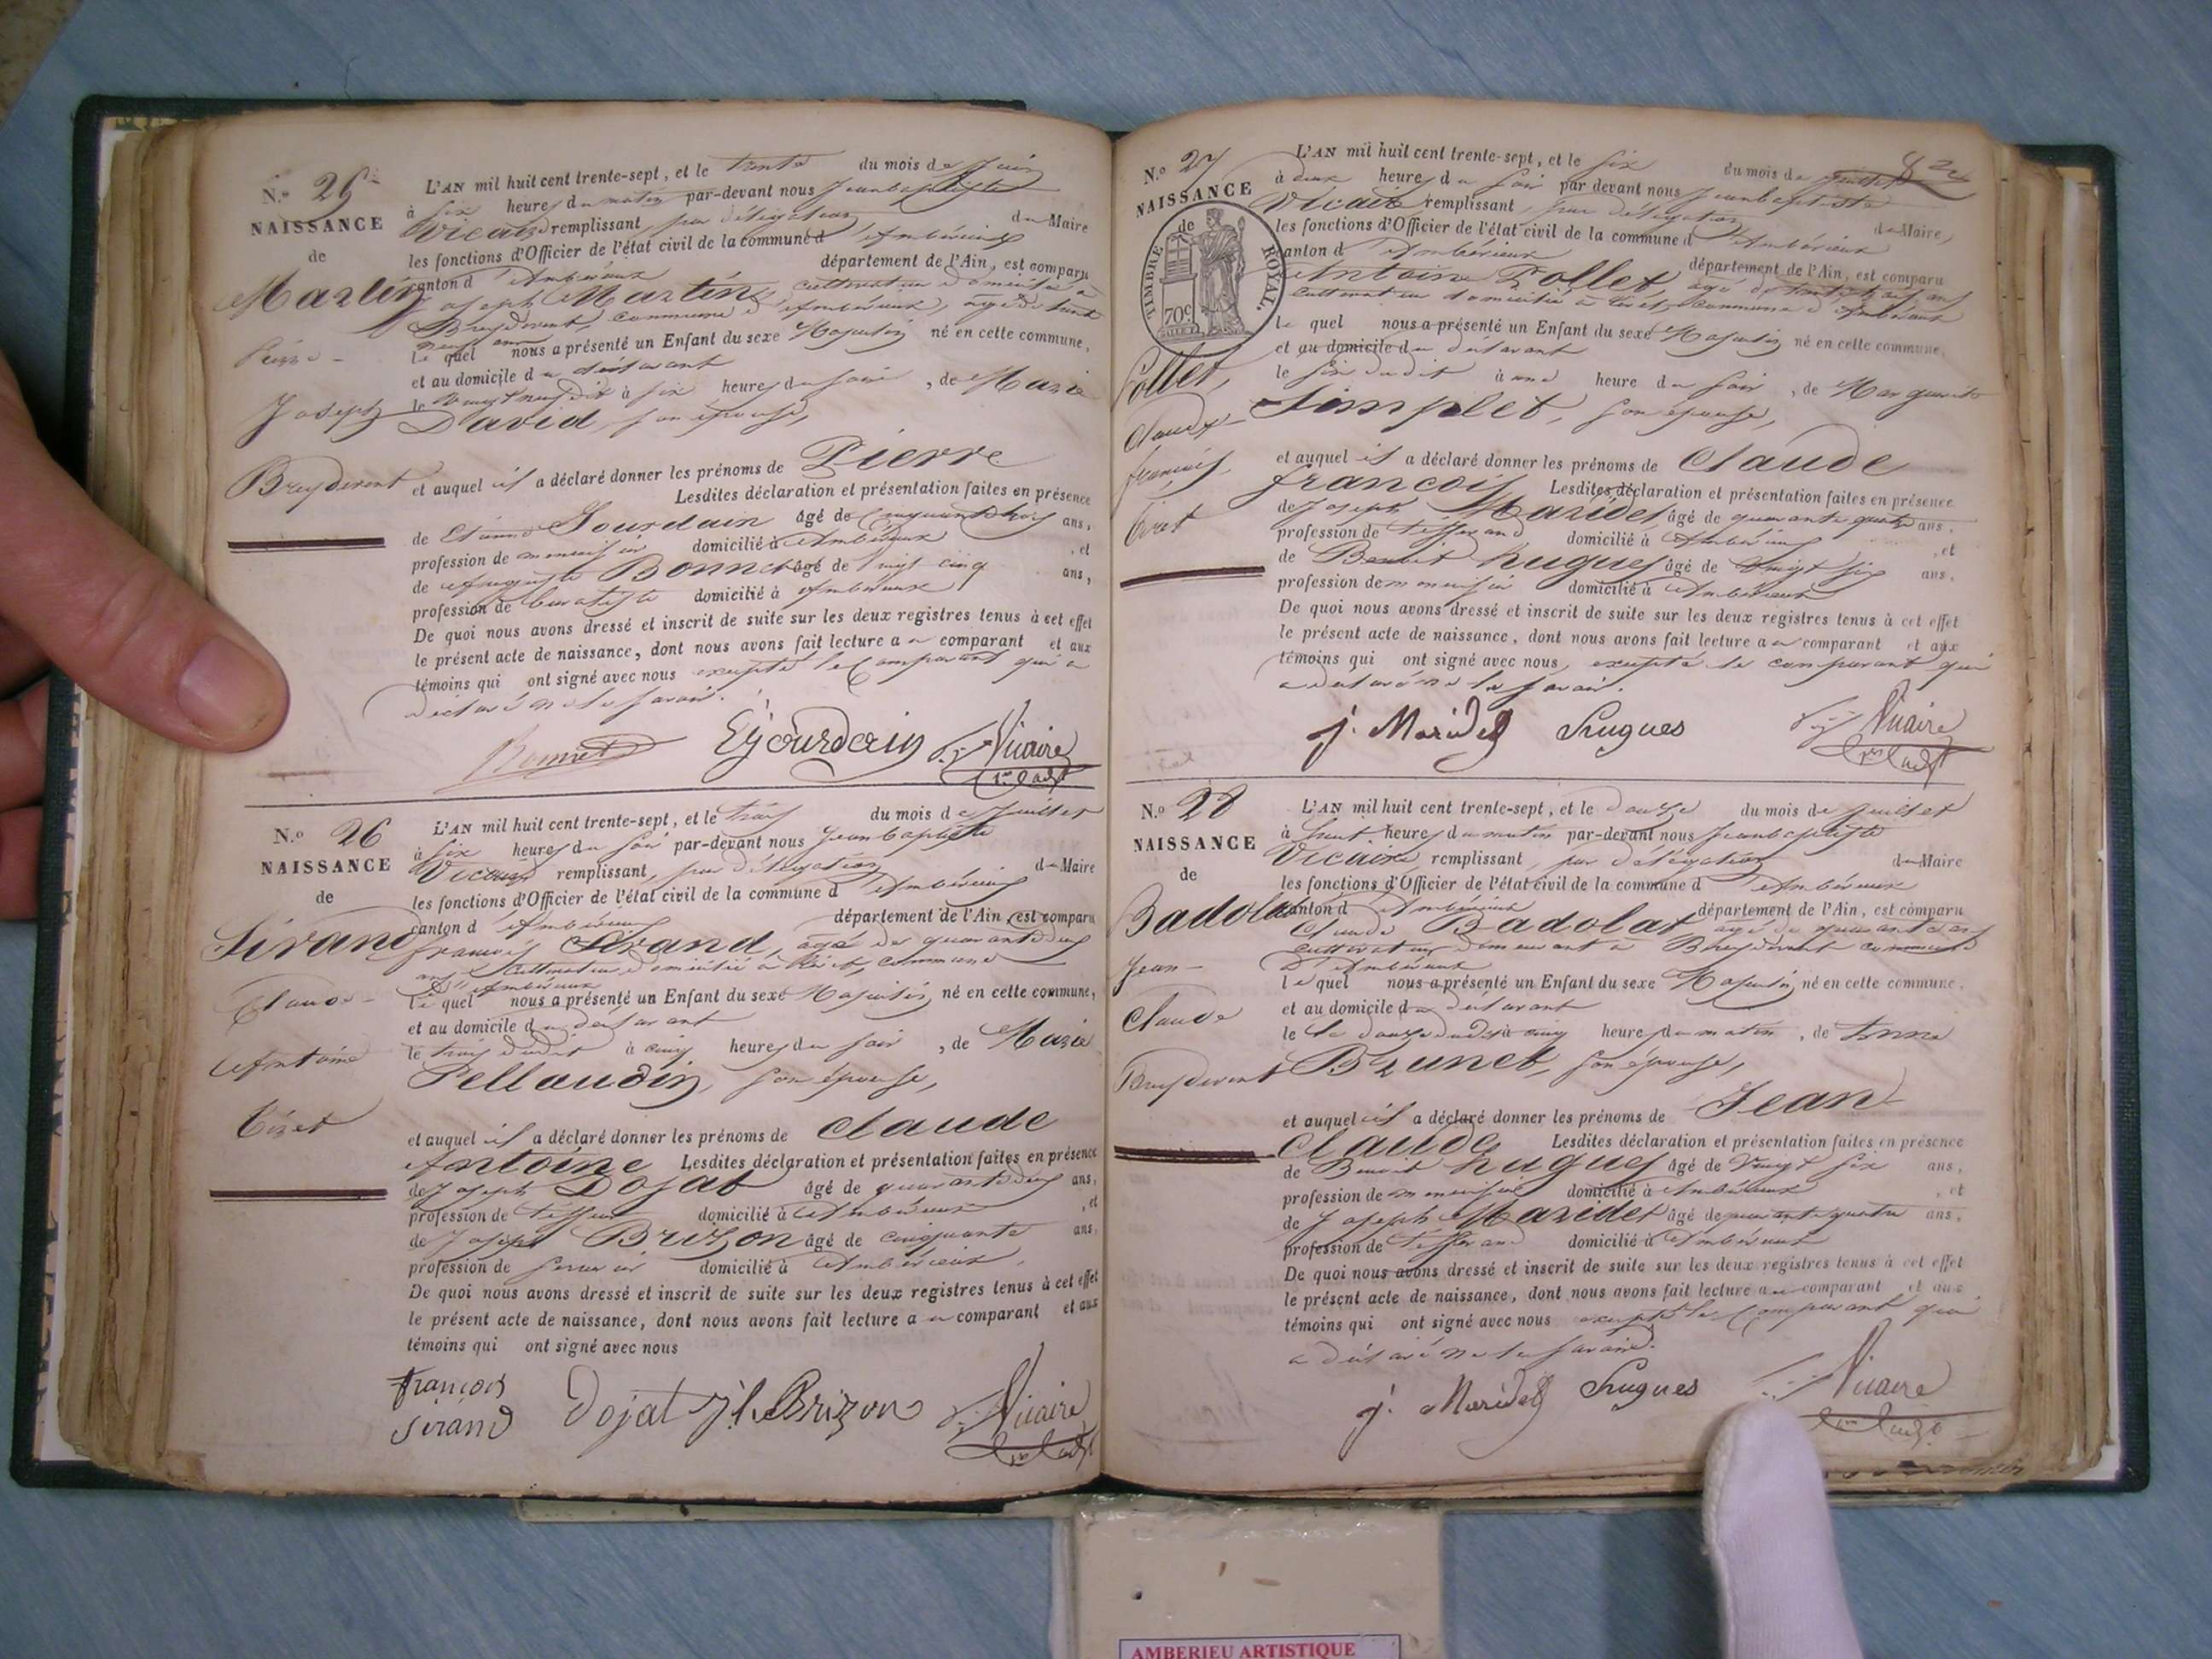 N.º 25
NAISSANCE
de
Martin
Pierre
Joseph
Breydevent
L'AN mil huit cent trente-sept, et le trente du mois de Juin
à six heures du matin par-devant nous Jean baptiste
Vicaire remplissant par délégation du Maire
les fonctions d'Officier de l'état civil de la commune d'Ambérieux
canton d'Ambérieux département de l'Ain, est comparu
Joseph Martin cultivateur domicilié à
Breydevent, commune d'Ambérieux, âgé de trente
neuf ans
le quel nous a présenté un Enfant du sexe Masculin né en cette commune,
et au domicile du déclarant
le vingt neuf dit à six heures du soir, de Marie
David, son épouse,
et auquel il a déclaré donner les prénoms de Pierre
Lesdites déclaration et présentation faites en présence
de Etienne Jourdain âgé de cinquante trois ans,
profession de menuisier domicilié à Ambérieux, et
de Auguste Bonnet âgé de vingt cinq ans,
profession de buraliste domicilié à Ambérieux
De quoi nous avons dressé et inscrit de suite sur les deux registres tenus à cet effet
le présent acte de naissance, dont nous avons fait lecture au comparant et aux
témoins qui ont signé avec nous excepté le Comparant qui a
déclaré ne le savoir.
Bonnet Ejourdain Vicaire
N.º 26
NAISSANCE
de
Sirand
Claude
Antoine
Tiret
L'AN mil huit cent trente-sept, et le trois du mois de Juillet
à six heures du soir par-devant nous Jean baptiste
Vicaire remplissant, par délégation du Maire
les fonctions d'Officier de l'état civil de la commune d'Ambérieux
canton d'Ambérieux département de l'Ain, est comparu
françois Sirand, âgé de quarante deux
ans cultivateur domicilié à Tiret, commune
d'Ambérieux
le quel nous a présenté un Enfant du sexe Masculin né en cette commune,
et au domicile du déclarant
le trois dudit à cinq heures du soir, de Marie
Pellaudin, son épouse,
et auquel il a déclaré donner les prénoms de claude
Antoine Lesdites déclaration et présentation faites en présence
de Joseph Dojat âgé de quarante deux ans,
profession de domicilié à Ambérieux, et
de Joseph Brizon âgé de cinquante ans.
profession de serrurier domicilié à Ambérieux,
De quoi nous avons dressé et inscrit de suite sur les deux registres tenus à cet effet
le présent acte de naissance, dont nous avons fait lecture au comparant et aux
témoins qui ont signé avec nous
françois
Sirand Dojat Brizon Vicaire
N.º 27
NAISSANCE
de
TIMBRE ROYAL.
70c
follet,
Claude
françois,
Tiret
L'AN mil huit cent trente-sept, et le six du mois de juillet
à deux heures du soir par devant nous Jean baptiste
Vicaire remplissant, par délégation du Maire,
les fonctions d'Officier de l'état civil de la commune d'Ambérieux
canton d'Ambérieux département de l'Ain, est comparu
Antoine follet, âgé de
cultivateur domicilié à Tiret, commune d'Ambérieux
le quel nous a présenté un Enfant du sexe Masculin né en cette commune,
et au domicile du déclarant
le six dudit à une heure du soir, de Marguerite
Simplet, son épouse,
et auquel il a déclaré donner les prénoms de Claude
françois Lesdites déclaration et présentation faites en présence
de Joseph Maridet, âgé de quarante quatre ans,
profession de tisserand domicilié à Ambérieux, et
de Benoit hugues âgé de vingt six ans,
profession de menuisier domicilié à Ambérieux
De quoi nous avons dressé et inscrit de suite sur les deux registres tenus à cet effet
le présent acte de naissance, dont nous avons fait lecture au comparant et aux
témoins qui ont signé avec nous, excepté le comparant qui
a déclaré ne le savoir.
j. Maridet hugues Vicaire
N.º 28
NAISSANCE
de
Badolat
Jean
Claude
Breydevent
L'AN mil huit cent trente-sept, et le douze du mois de juillet
à huit heures du matin par-devant nous Jean baptiste
Vicaire remplissant, par délégation du Maire
les fonctions d'Officier de l'état civil de la commune d'Ambérieux
canton d'Ambérieux département de l'Ain, est comparu
Claude Badolat âgé de quarante ans
cultivateur, demeurant à Breydevent commune
d'Ambérieux
le quel nous a présenté un Enfant du sexe Masculin né en cette commune,
et au domicile du déclarant
le le douze dudit à cinq heures du matin, de Anne
Brunet, son épouse,
et auquel il a déclaré donner les prénoms de Jean
Claude Lesdites déclaration et présentation faites en présence
de Benoit hugues âgé de vingt six ans,
profession de menuisier domicilié à Ambérieux, et
de Joseph Maridet âgé de quarante quatre ans,
profession de tisserand domicilié à Ambérieux
De quoi nous avons dressé et inscrit de suite sur les deux registres tenus à cet effet
le présent acte de naissance, dont nous avons fait lecture au comparant et aux
témoins qui ont signé avec nous excepté le Comparant qui
a déclaré ne le savoir.
j. Maridet hugues Vicaire
AMBERIEU ARTISTIQUE